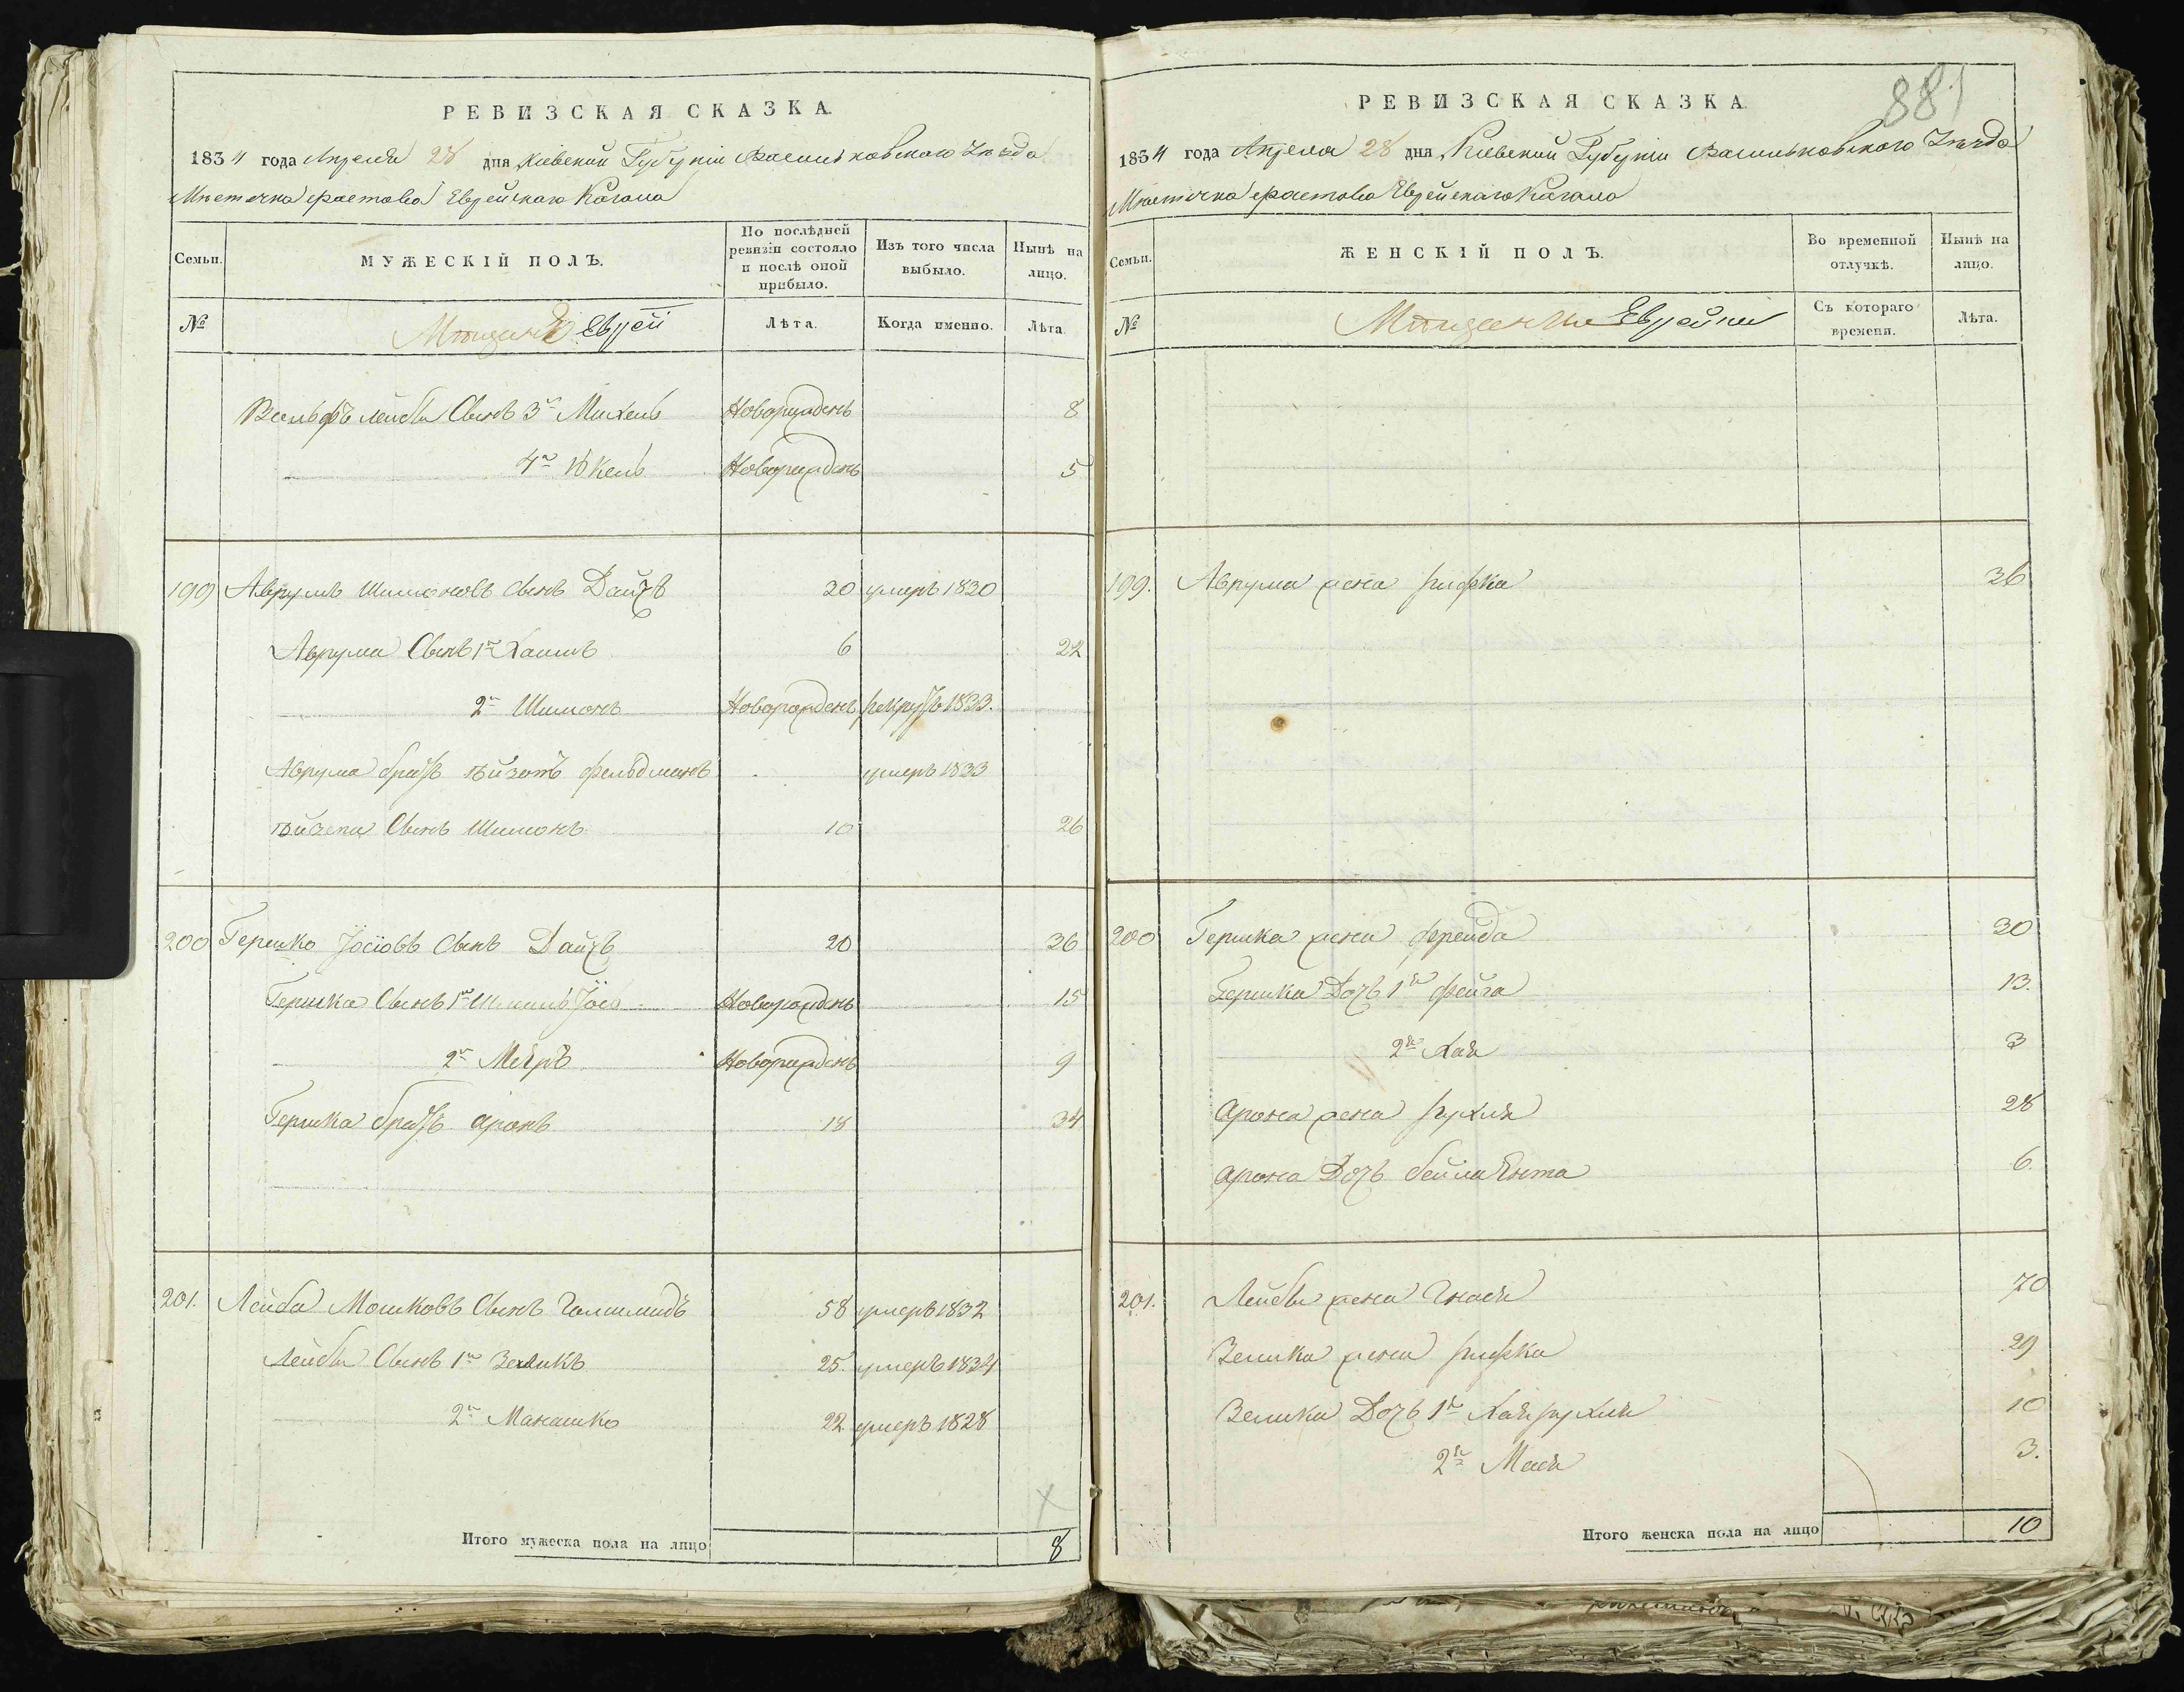 РЕВИЗСКАЯ СКАЗКА.
1834 года Апреля 28 дня Кіевской Губерніи Васильковского Уезда
Местечка Фастова Еврейскаго Кагала
Семьи.
МУЖЕСКІЙ ПОЛЪ.
По послѣдней ревизіи состояло и послѣ оной прибыло.
Изъ того числа выбыло.
Нынѣ на лицо.
№
Мещане Евреи
Лѣта.
Когда именно.
Лѣта.
Вольфъ Лейбы Сынъ 3й Михель Новорожденъ 8
4й Новорожденъ 5
199 Аврумъ Шимоновъ Сынъ Дайчъ 30 умеръ 1830
Аврума Сынъ 1й Хаимъ 6 22
2й Шимонъ Новорожденъ рекрутъ 1833.
Аврума братъ Фельдманъ умеръ 1833
Сынъ Шимонъ 10 26
200 Гершко Іосіовъ Сынъ Дайчъ 20 36
Гершка Сынъ 1й Новорожденъ 15
2й Мееръ Новорожденъ 9
Гершка братъ Аронъ 18 34
201. Лейба Мошковъ Сынъ 58 умеръ 1832
Лейбы Сынъ 1й Зеликъ 25. умеръ 1834
2й Манашко 22 умеръ 1828
Итого мужеска пола на лицо 8
881
РЕВИЗСКАЯ СКАЗКА.
1834 года Апреля 28 дня Кіевской Губерніи Васильковского Уезда
Местечка Фастова Еврейскаго Кагала
Семьи.
ЖЕНСКІЙ ПОЛЪ.
Во временной отлучкѣ.
Нынѣ на лицо.
№
Мещанки Еврейки
Съ котораго времени.
Лѣта.
199. Аврума жена Рифка 36
200 Гершка жена Фрейда 30
Гершка Дочь 1я Фейга 13.
2я Хая 3
Арона жена Рухля 28
Арона Дочь Бейла Ента 6.
201. Лейбы жена Гнася 70
Зелика жена Рифка 29
Зелика Дочь 1я Хая Рухля 10
2я Мася 3.
Итого женска пола на лицо 10